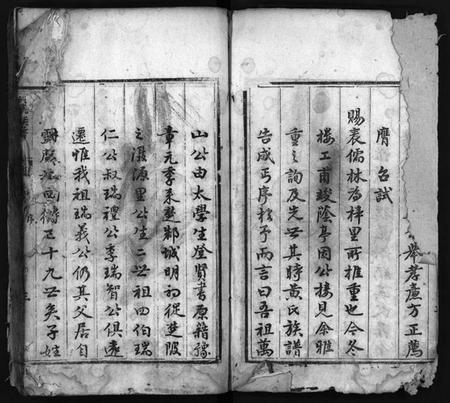 舉孝廉方正薦
膺 召試
賜表儒林為梓里所推重也今冬
樓工甫竣蔭亭因公接見余雅
重之詢及先世其時黃氏族譜
告成丐序於予而言曰吾祖萬
山公由太學生登賢書原籍豫
章元季來鄰城明初從楚陂
之源里公生二世祖四伯瑞
仁公叔瑞禮公季瑞智公俱遠
遷惟我祖瑞義公仍其父居自
四十九世矣子姓